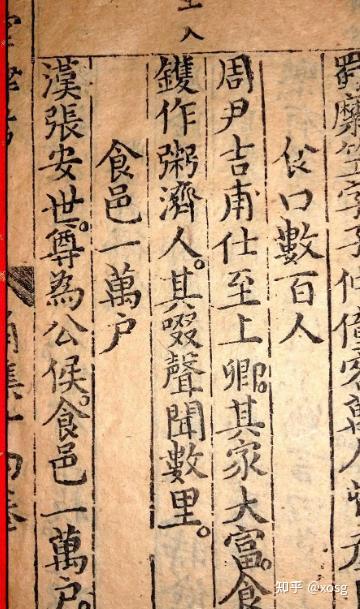 食口數百人
周尹吉甫仕至上卿。其家大富。食
鑊作粥濟人。其啜聲聞數里。
食邑一萬户
漢張安世。尊為公侯。食邑一萬户。
知乎 @xosg